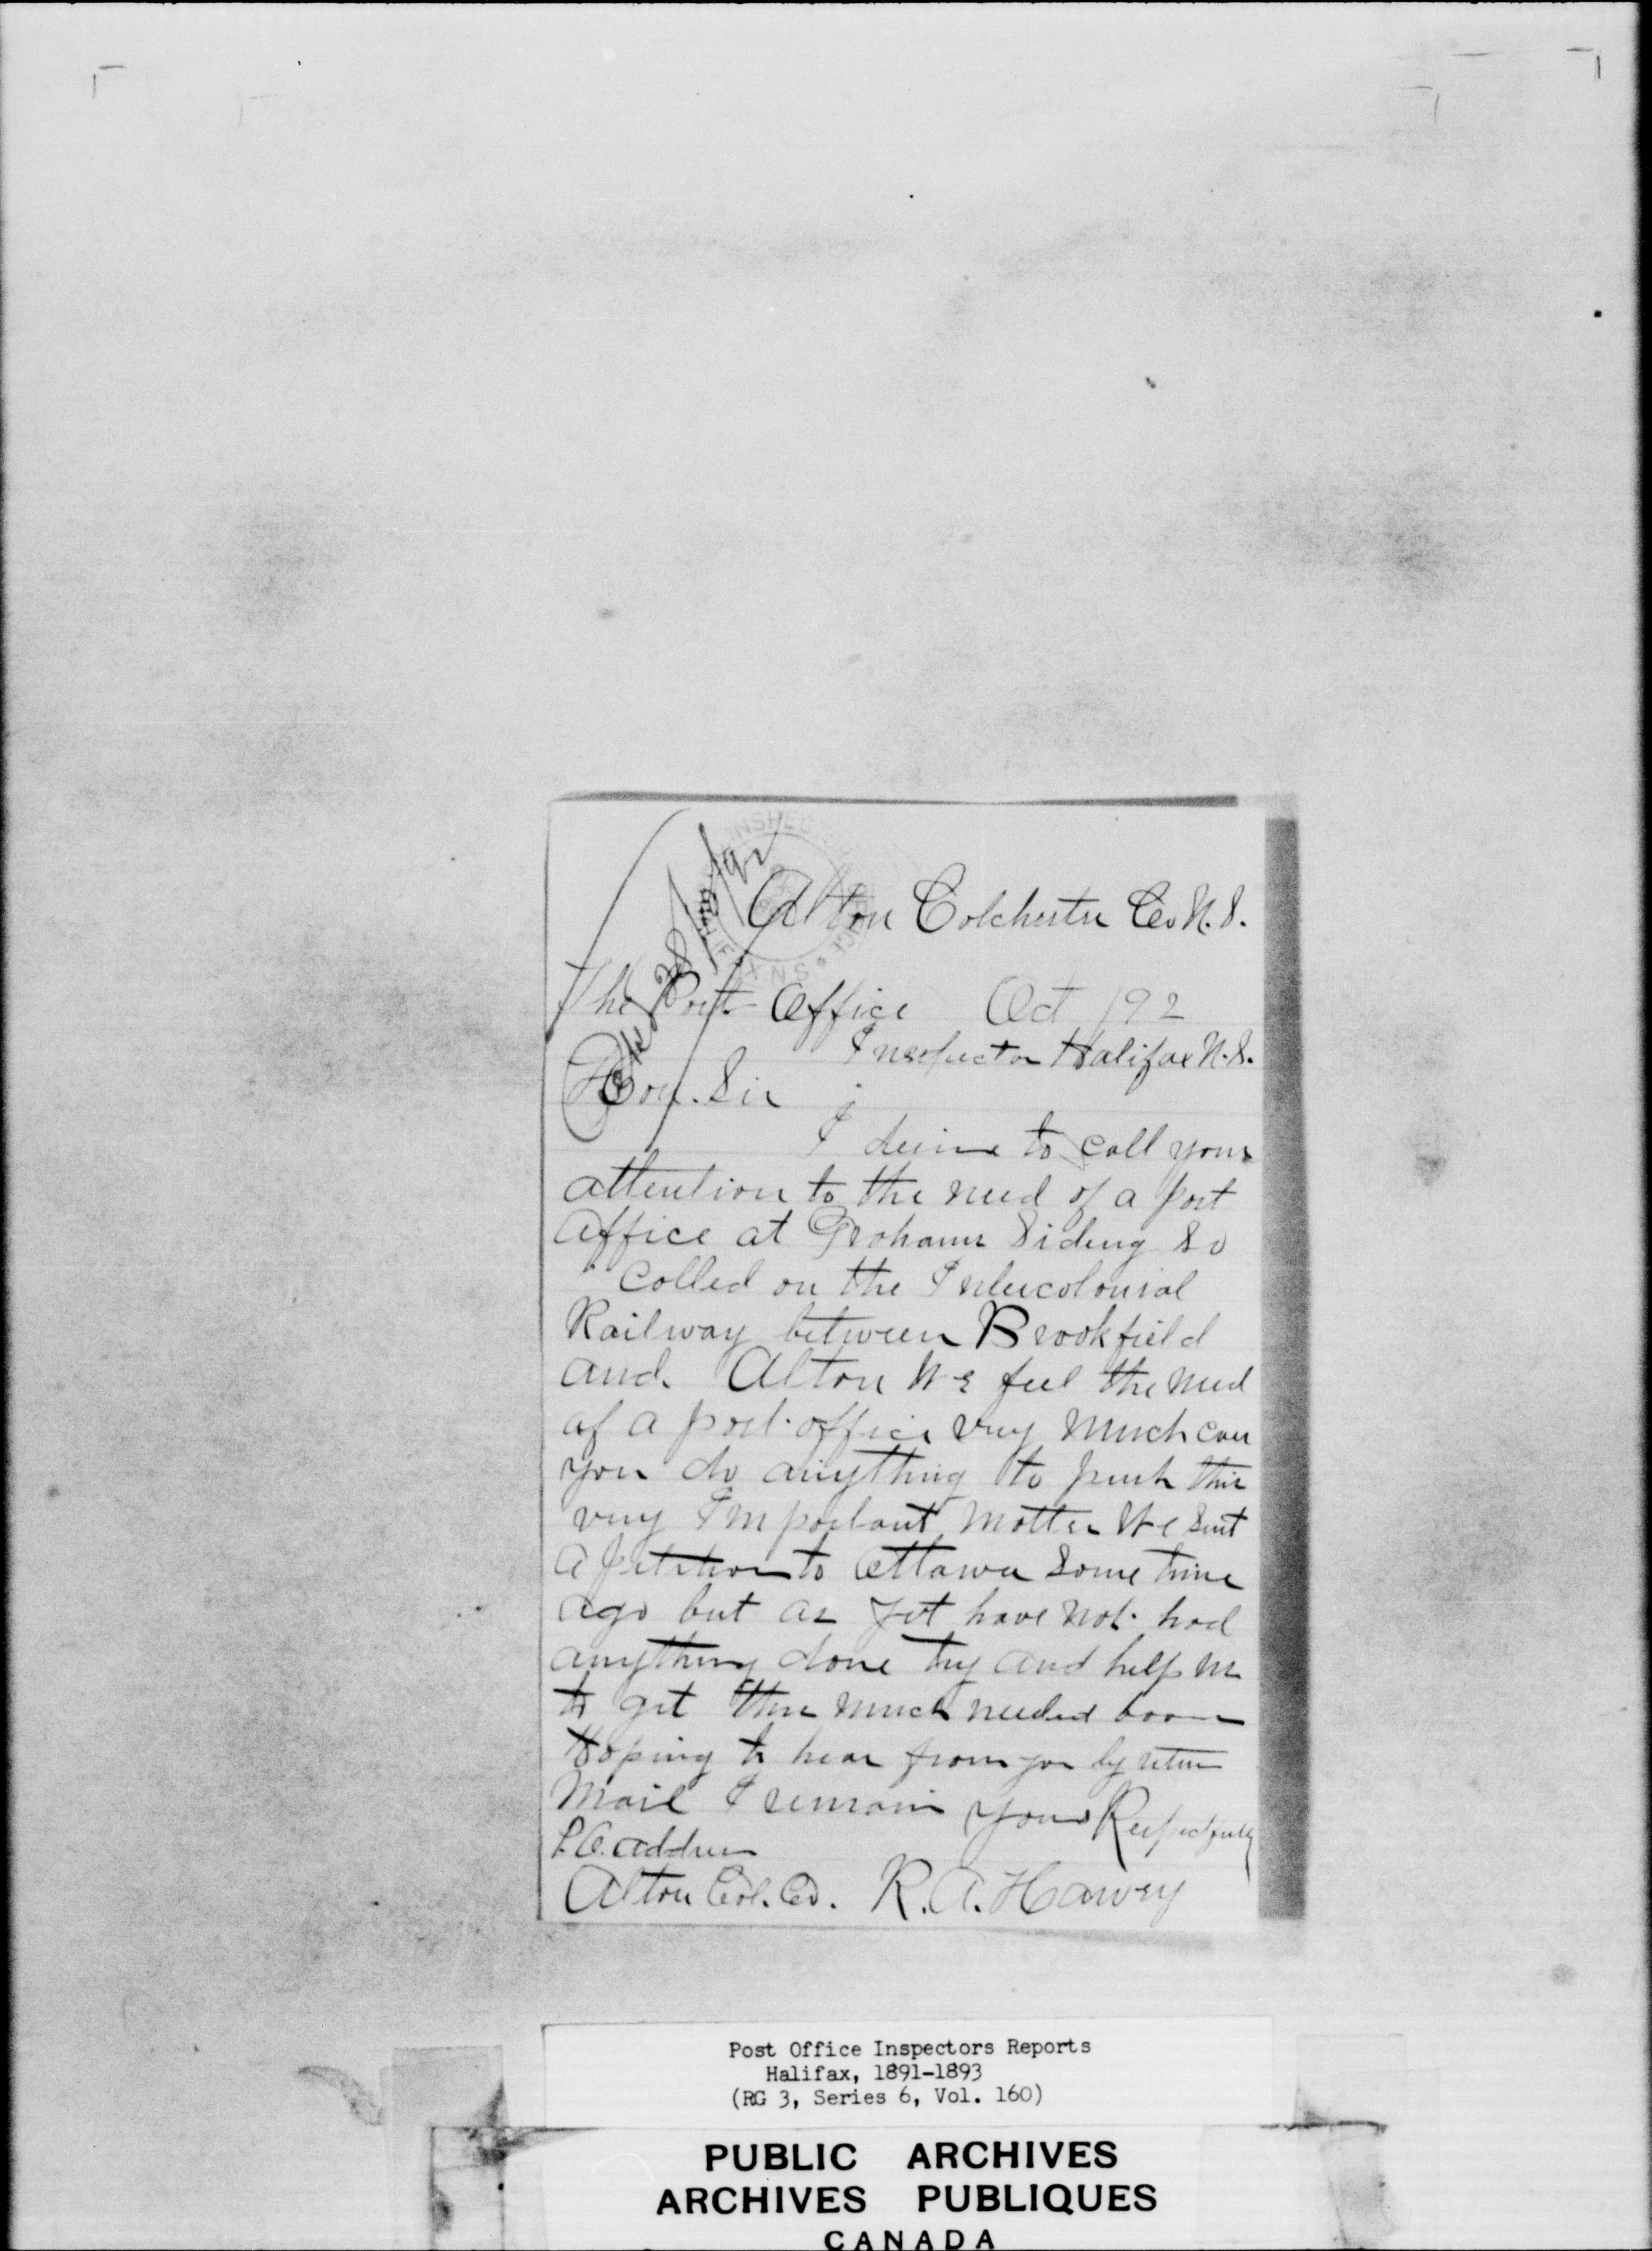 Alton Colchester Co N.S.
The Post Office Oct /92
Inspector Halifax N.S.
Hon. Sir
I desire to call your
attention to the need of a post
office at Grahams Siding so
called on the Intercolonial
Railway between Brookfield
and. Alton We feel the need
of a post office very much can
you do anything to push this
very Important matter We sent
a petition to Ottawa some time
ago but as yet have not had
anything done try and help us
to get this much needed boon
Hoping to hear from you by return
Mail I remain yours Respectfully
P.O. address
Alton Col. Co. R. A. Harvey
Post Office Inspectors Reports
Halifax, 1891-1893
(RG 3, Series 6, Vol. 160)
PUBLIC ARCHIVES
ARCHIVES PUBLIQUES
CANADA